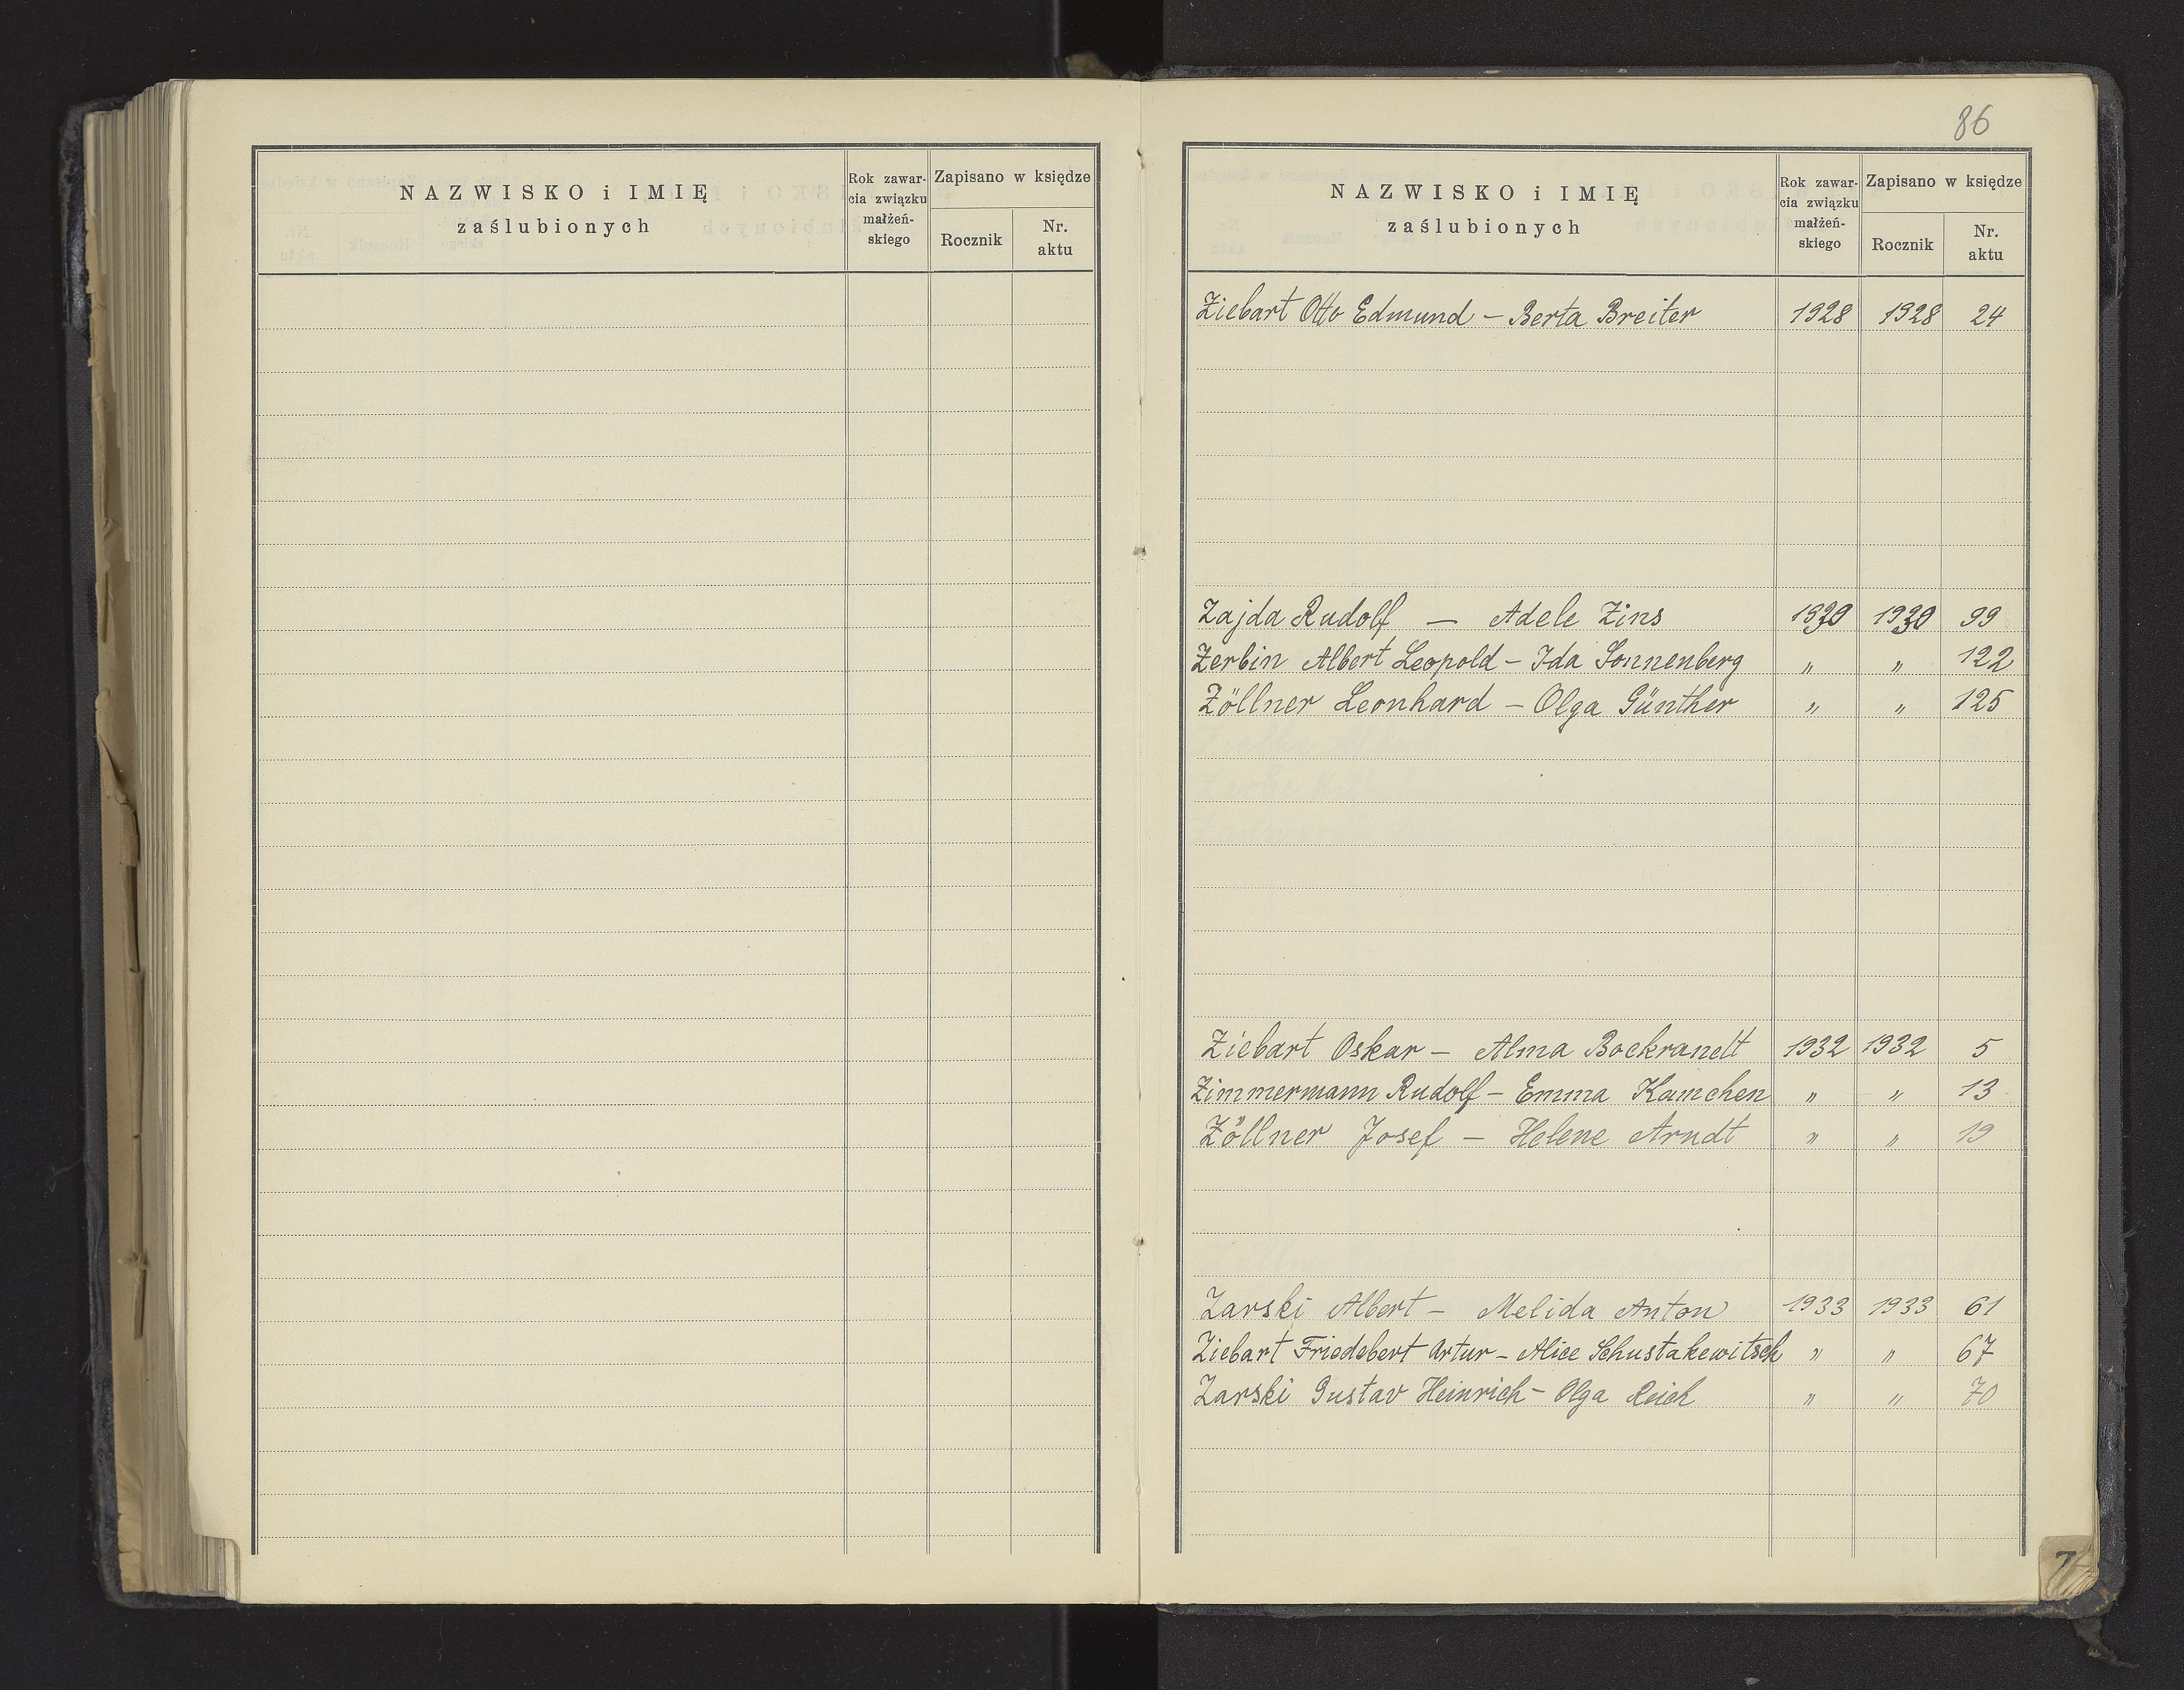 NAZWISKO i IMIĘ
zaślubionych
Rok zawar-
cia związku
małżeń-
skiego
Zapisano w księdze
Rocznik
Nr.
aktu
86
NAZWISKO i IMIĘ
zaślubionych
Rok zawar-
cia związku
małżeń-
skiego
Zapisano w księdze
Rocznik
Nr.
aktu
Ziebart Otto Edmund – Berta Breiter 1928 1928 24
Zajda Rudolf – Adele Zins 1930 1930 99
Zerbin Albert Leopold – Ida Sonnenberg " " 122
Zöllner Leonhard – Olga Günther " " 125
Ziebart Oskar – Alma Bockrandt 1932 1932 5
Zimmermann Rudolf – Emma Kamchen " " 13
Zöllner Josef – Helene Arndt " " 19
Zarski Albert – Melida Anton 1933 1933 61
Ziebart Friedebert Artur – Alice Schustakewitsch " " 67
Zarski Gustav Heinrich – Olga Reich " " 70
Z